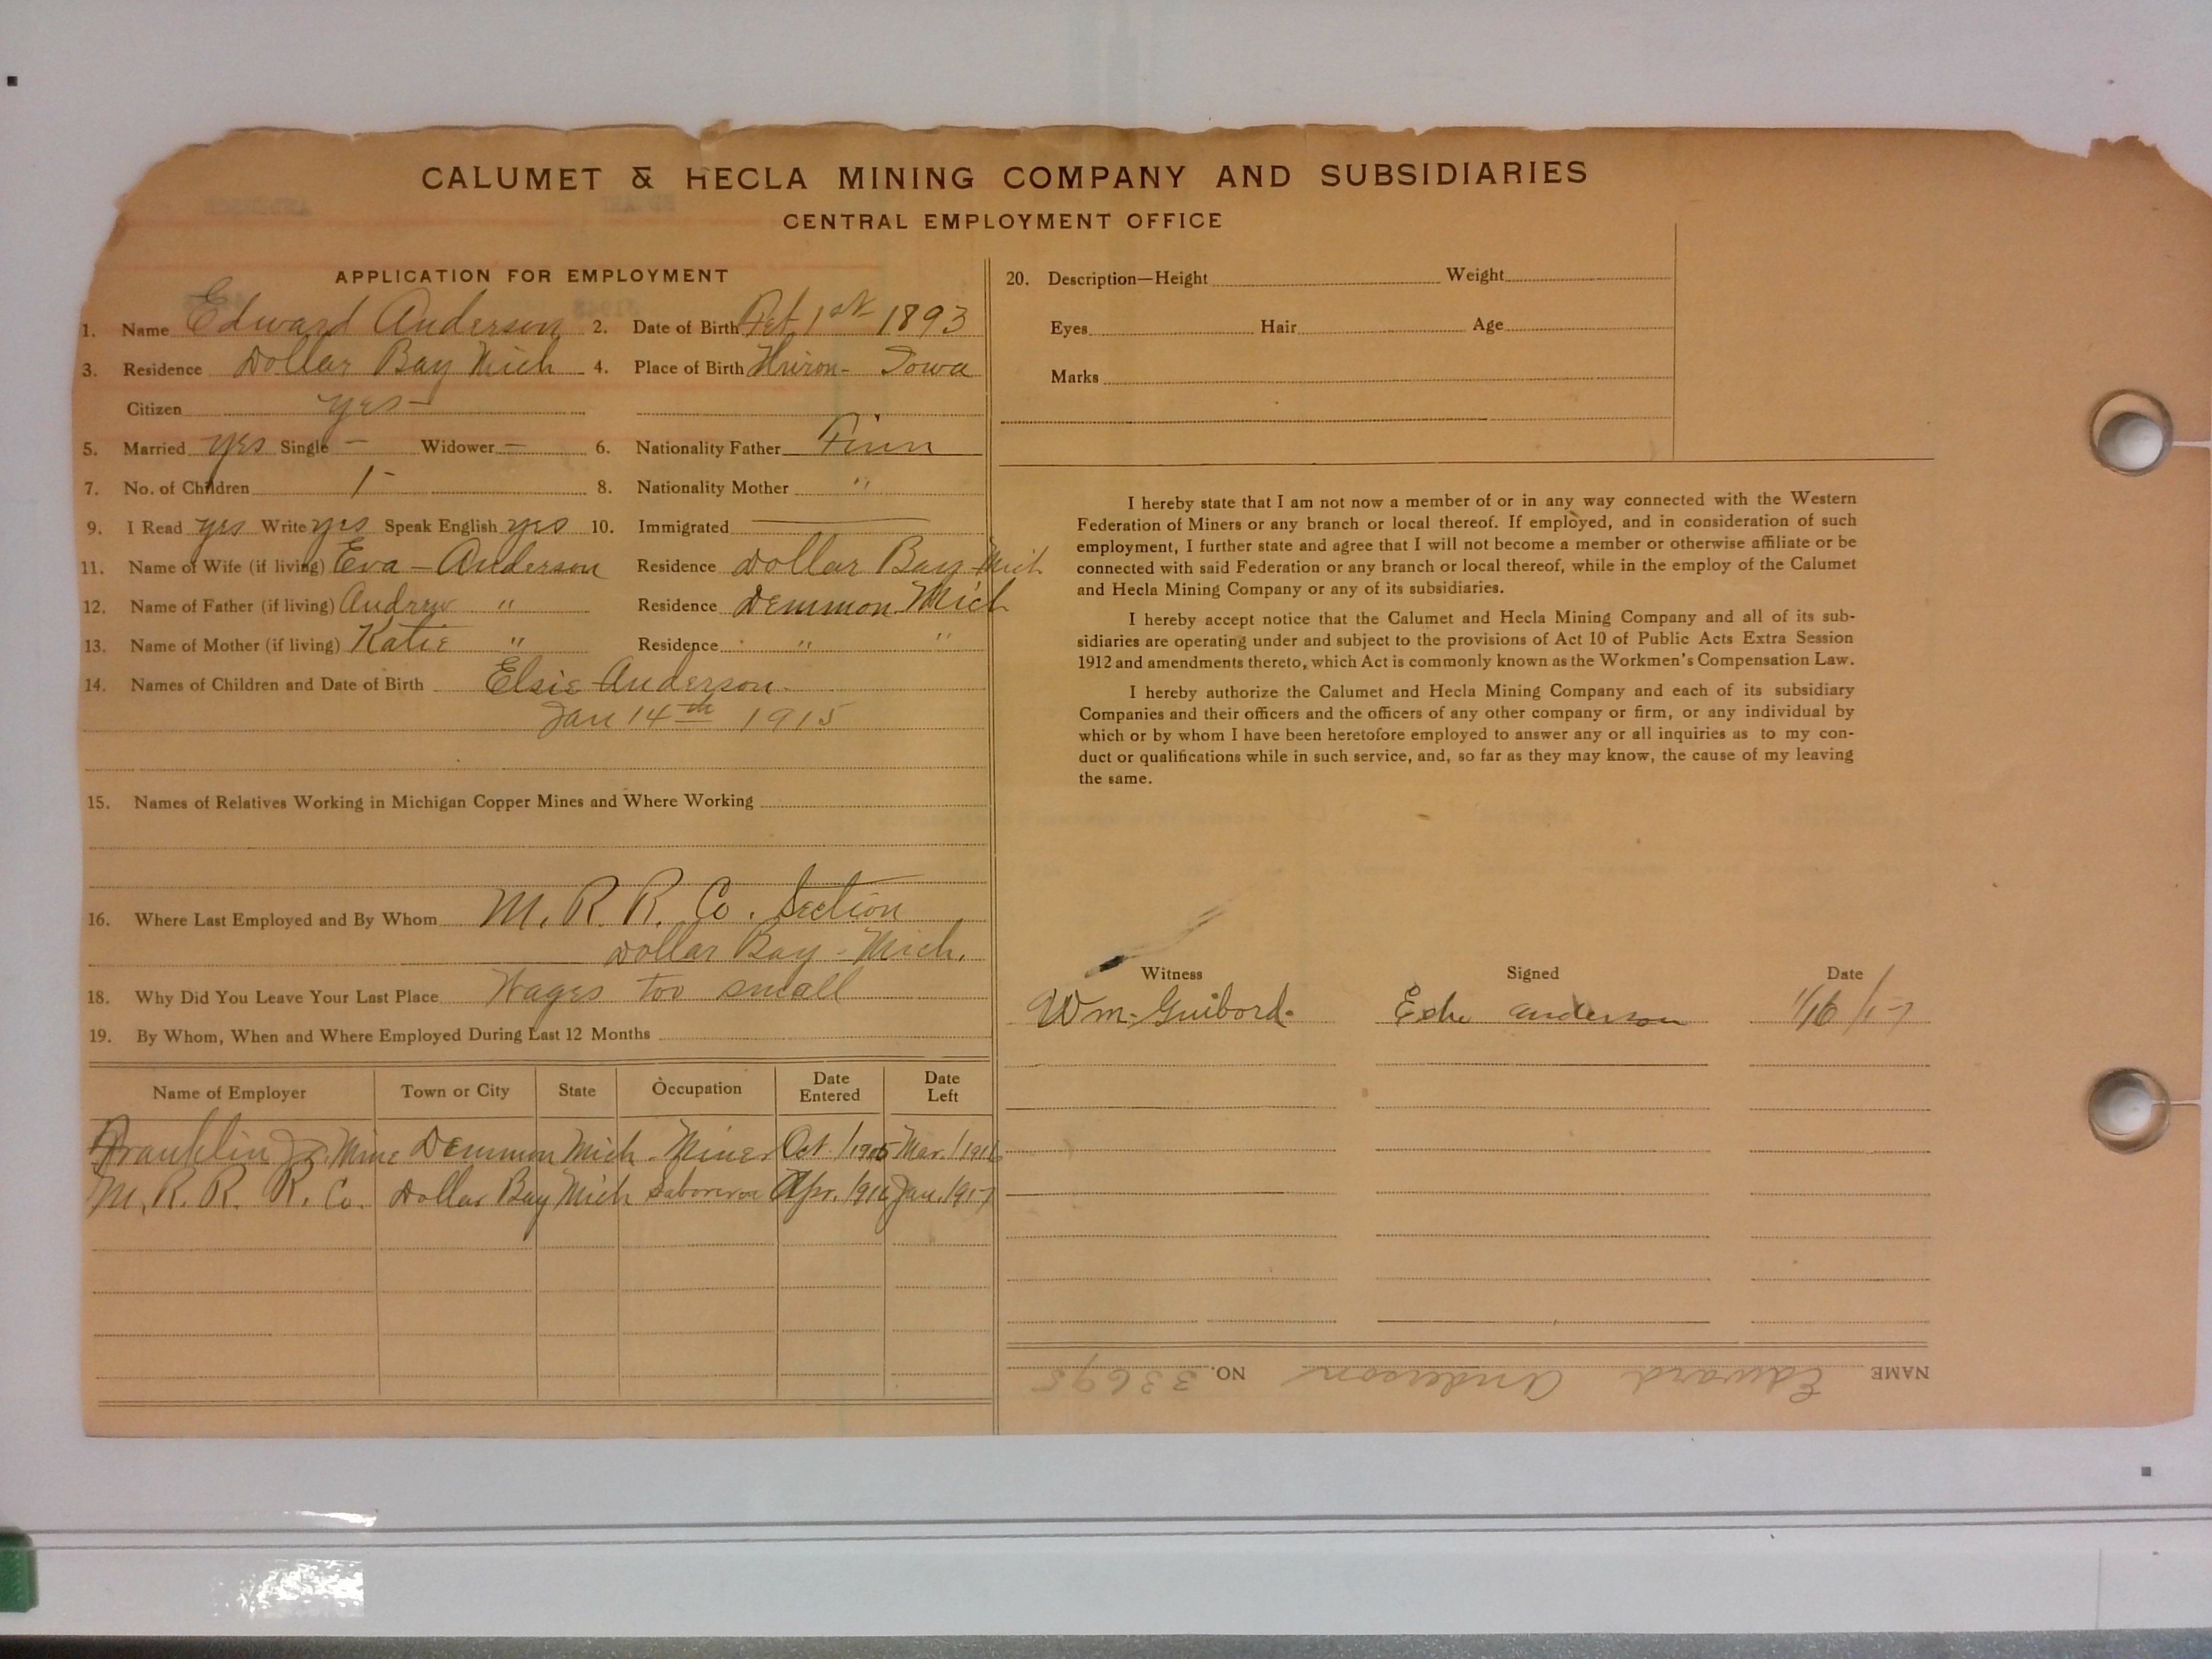 CALUMET & HECLA MINING COMPANY AND SUBSIDIARIES
CENTRAL EMPLOYMENT OFFICE
APPLICATION FOR EMPLOYMENT
1. Name Edward Anderson 2. Date of Birth Oct 1st 1893
3. Residence Dollar Bay Mich 4. Place of Birth Huron - Iowa
Citizen yes -
5. Married yes Single - Widower - 6. Nationality Father Finn
7. No. of Children 1 - 8. Nationality Mother "
9. I Read yes Write yes Speak English yes 10. Immigrated
11. Name of Wife (if living) Eva - Anderson Residence Dollar Bay Mich
12. Name of Father (if living) Andrew " Residence Demmon Mich
13. Name of Mother (if living) Katie " Residence " "
14. Names of Children and Date of Birth Elsie Anderson.
Jan 14th 1915
15. Names of Relatives Working in Michigan Copper Mines and Where Working
16. Where Last Employed and By Whom M. R. R. Co. Section
Dollar Bay - Mich.
18. Why Did You Leave Your Last Place Wages too small
19. By Whom, When and Where Employed During Last 12 Months
Name of Employer Town or City State Occupation Date Entered Date Left
Franklin Jr. Mine Demmon Mich - Miner Oct / 1905 Mar. / 1916
M. R. R. R. Co. Dollar Bay Mich Apr. / 916 Jan. / 917
20. Description—Height Weight
Eyes Hair Age
Marks
I hereby state that I am not now a member of or in any way connected with the Western
Federation of Miners or any branch or local thereof. If employed, and in consideration of such
employment, I further state and agree that I will not become a member or otherwise affiliate or be
connected with said Federation or any branch or local thereof, while in the employ of the Calumet
and Hecla Mining Company or any of its subsidiaries.
I hereby accept notice that the Calumet and Hecla Mining Company and all of its sub-
sidiaries are operating under and subject to the provisions of Act 10 of Public Acts Extra Session
1912 and amendments thereto, which Act is commonly known as the Workmen's Compensation Law.
I hereby authorize the Calumet and Hecla Mining Company and each of its subsidiary
Companies and their officers and the officers of any other company or firm, or any individual by
which or by whom I have been heretofore employed to answer any or all inquiries as to my con-
duct or qualifications while in such service, and, so far as they may know, the cause of my leaving
the same.
Witness Signed Date
Wm. Guibord. Anderson 1/16/17
NAME Edward Anderson NO. 33695